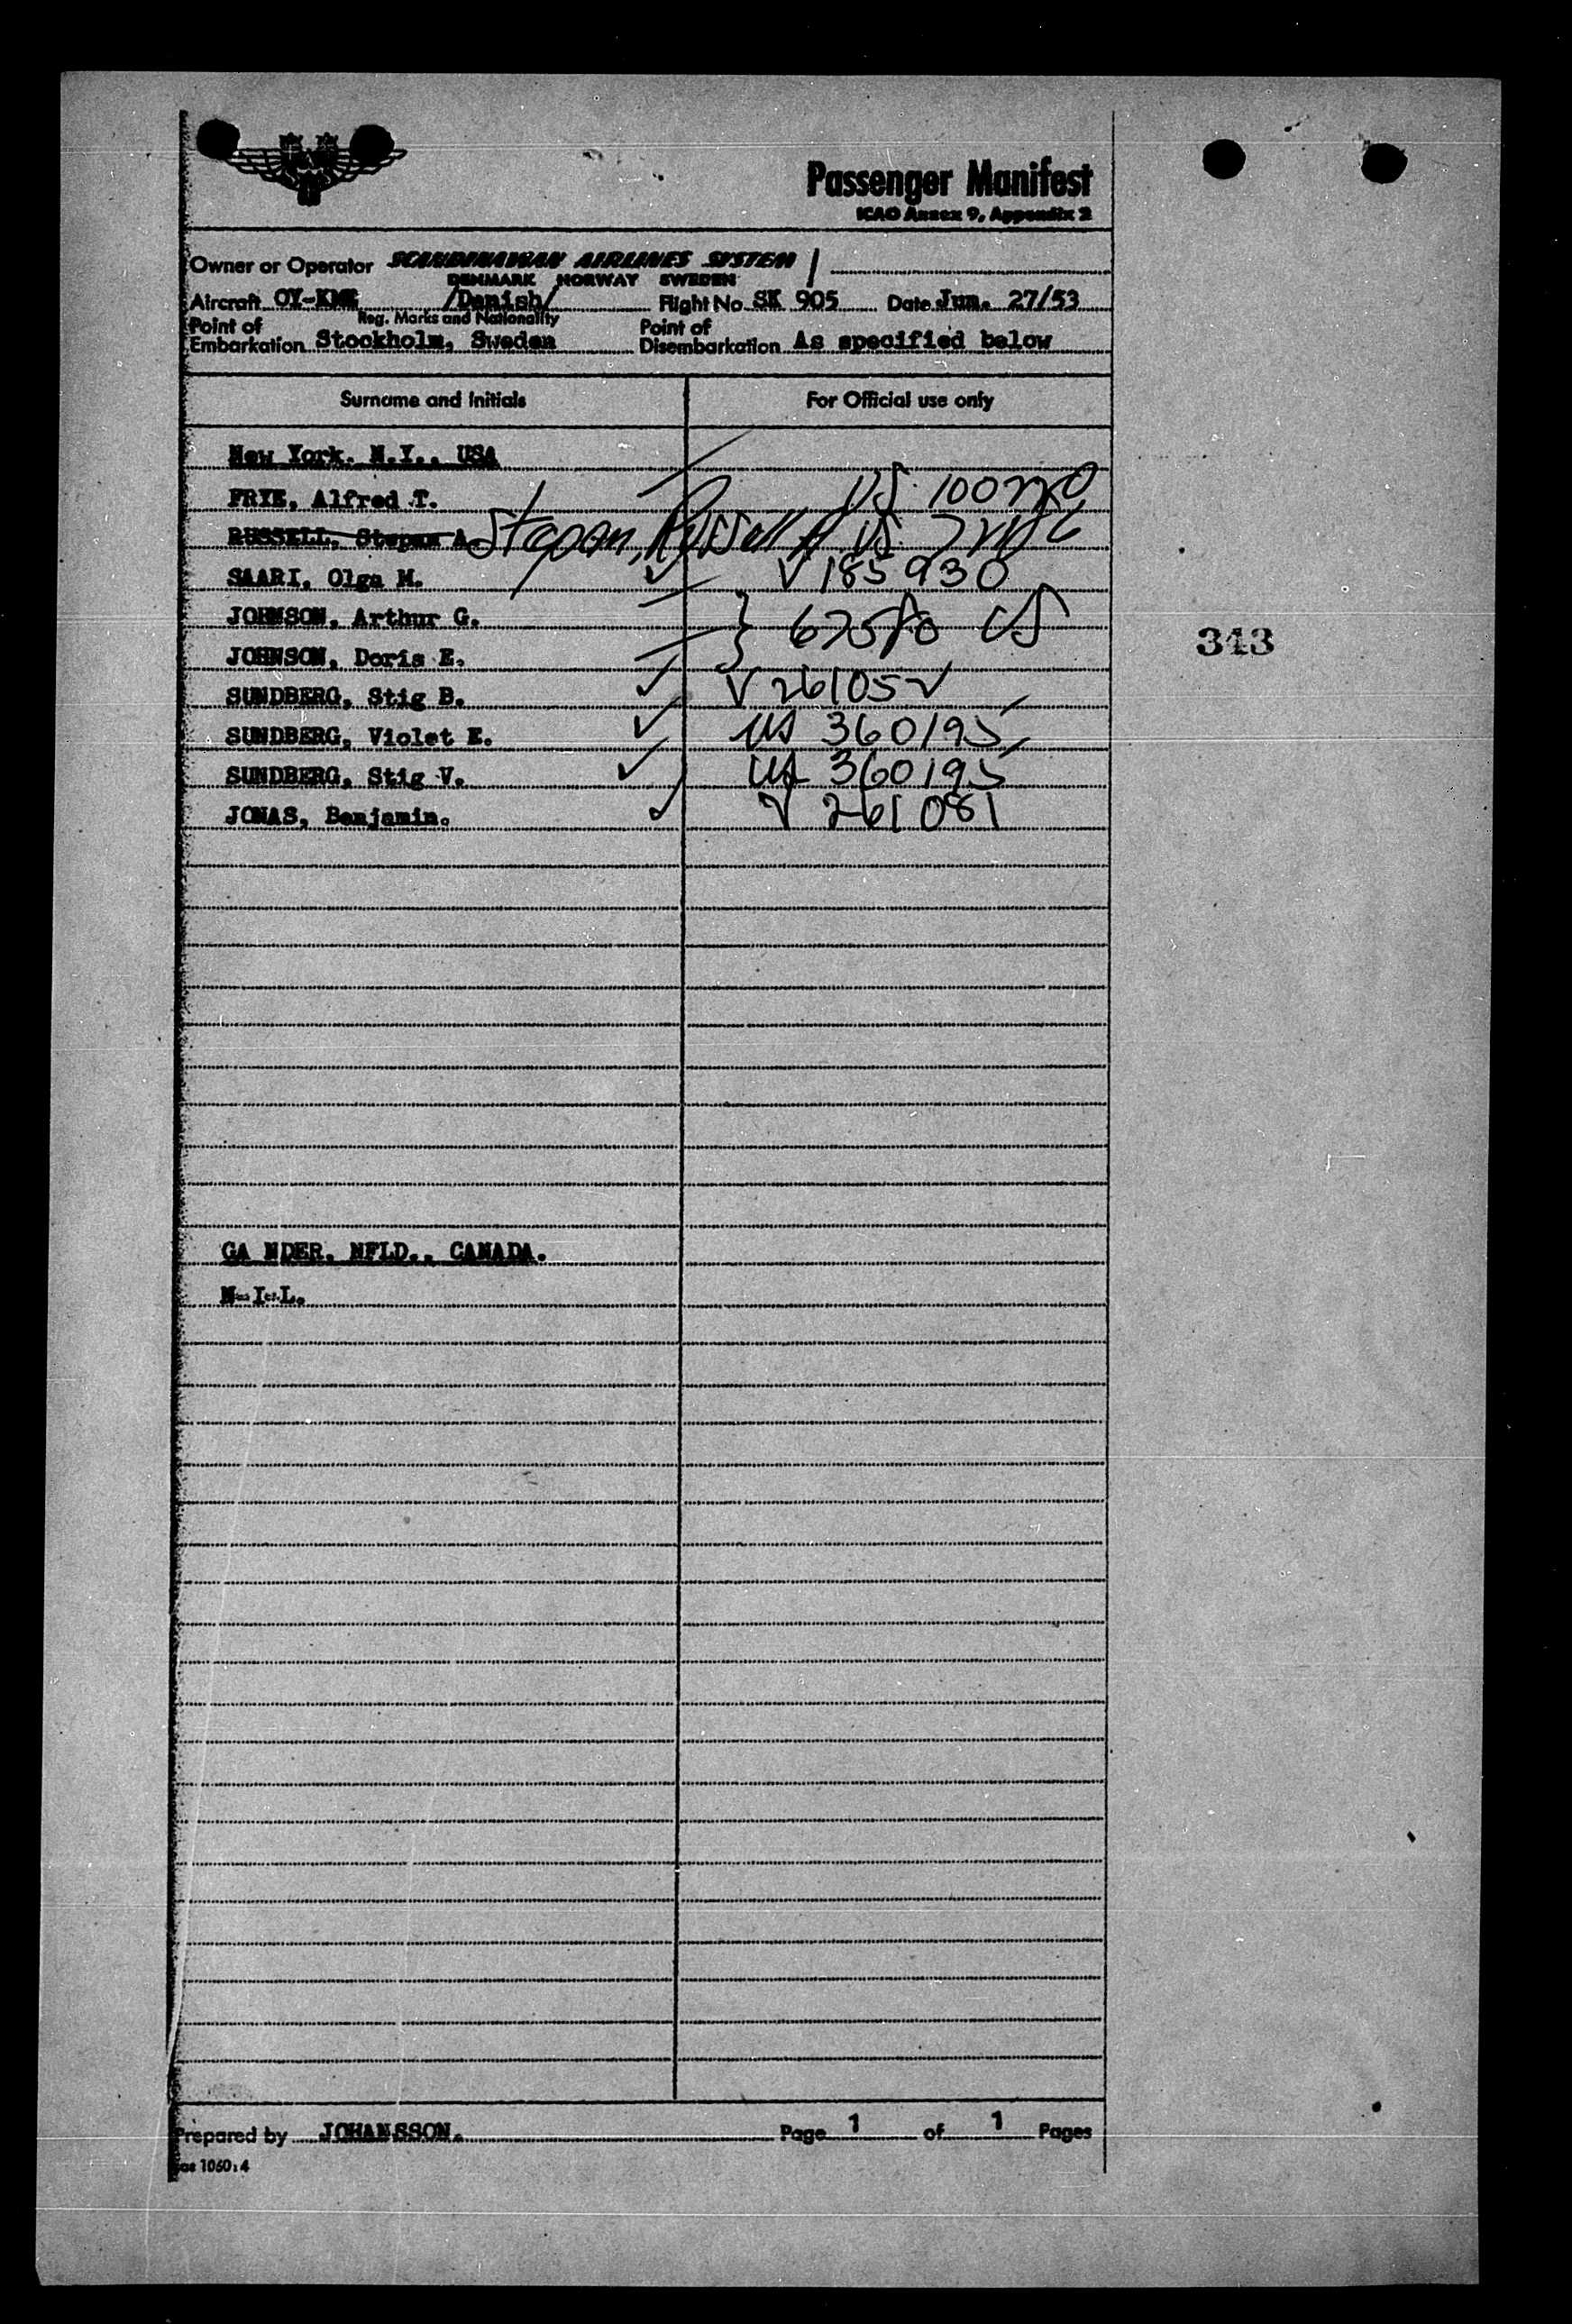 Passenger Manifest
ICAO Annex 9, Appendix 2
Owner or Operator SCANDINAVIAN AIRLINES SYSTEM
DENMARK NORWAY SWEDEN
Aircraft /Danish/ Flight No. SK 905 Date Jun. 27/53
Reg. Marks and Nationality
Point of Embarkation Stockholm, Sweden Point of Disembarkation As specified below
Surname and Initials For Official use only
New York. N.Y., USA
FRYE, Alfred T. US
RUSSELL, Stepan A. Stepan, Russell A US
SAARI, Olga M. ✓ V 185930
JOHNSON, Arthur G. } US
JOHNSON, Doris E.
343
SUNDBERG, Stig B. ✓ V 261052
SUNDBERG, Violet E. ✓ US 360195
SUNDBERG, Stig V. ✓ US 360195
JONAS, Benjamin. ✓ V 261081
GA NDER, NFLD., CANADA.
N-I-L.
Prepared by JOHANSSON. Page 1 of 1 Pages
1060:4